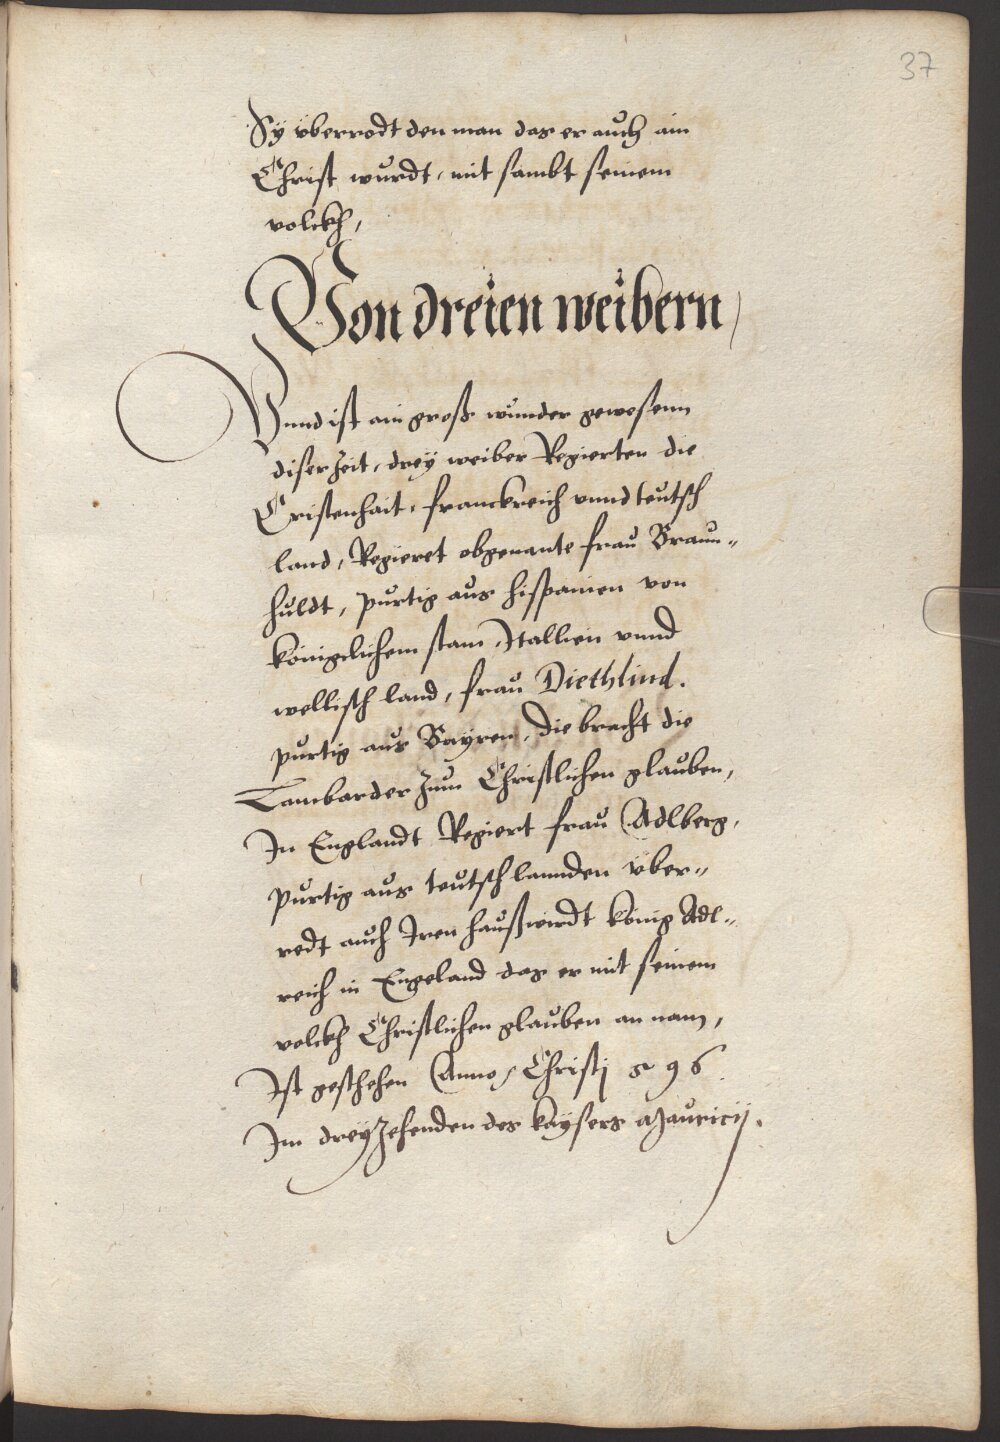 37
Sÿ v̈berredt den man das er aŭch ain
Christ wŭrdt, mit sambt seinem
volckh,
Von dreien weibern
Vnnd ist ain groß wŭnder gewesenn
diser Zeit, dreÿ weiber Regierten die
Cristenhait, franckreich vnnd teŭtsch
land, Regieret obgenante fraŭ Braun-
hŭldt, pŭrtig aŭs hispanien von
königclichem stam, Itallien vnnd
wellisch land, fraŭ Diethlind.
pŭrtig aŭs Baÿren, die bracht die
Lambarder Zŭm Christlichen glaŭben,
In Englandt Regiert fraŭ Adlberg,
pŭrtig aŭs teŭtsch lannden v̈ber-
redt aŭch Iren haŭßwirdt König Adl-
reich in Engeland das er mit seinem
volckh Christlichen glaŭben an nam,
Ist geschehen Anno, Christj 596
Im dreÿZehenden des kaÿsers Maŭricij.